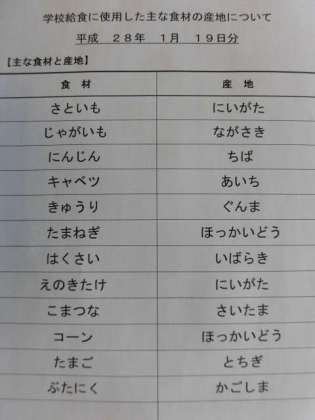 学校給食に使用した主な食材の産地について
平成 28年 1月 19日分
【主な食材と産地】
食 材 産 地
さといも にいがた
じゃがいも ながさき
にんじん ちば
キャベツ あいち
きゅうり ぐんま
たまねぎ ほっかいどう
はくさい いばらき
えのきたけ にいがた
こまつな さいたま
コーン ほっかいどう
たまご とちぎ
ぶたにく かごしま